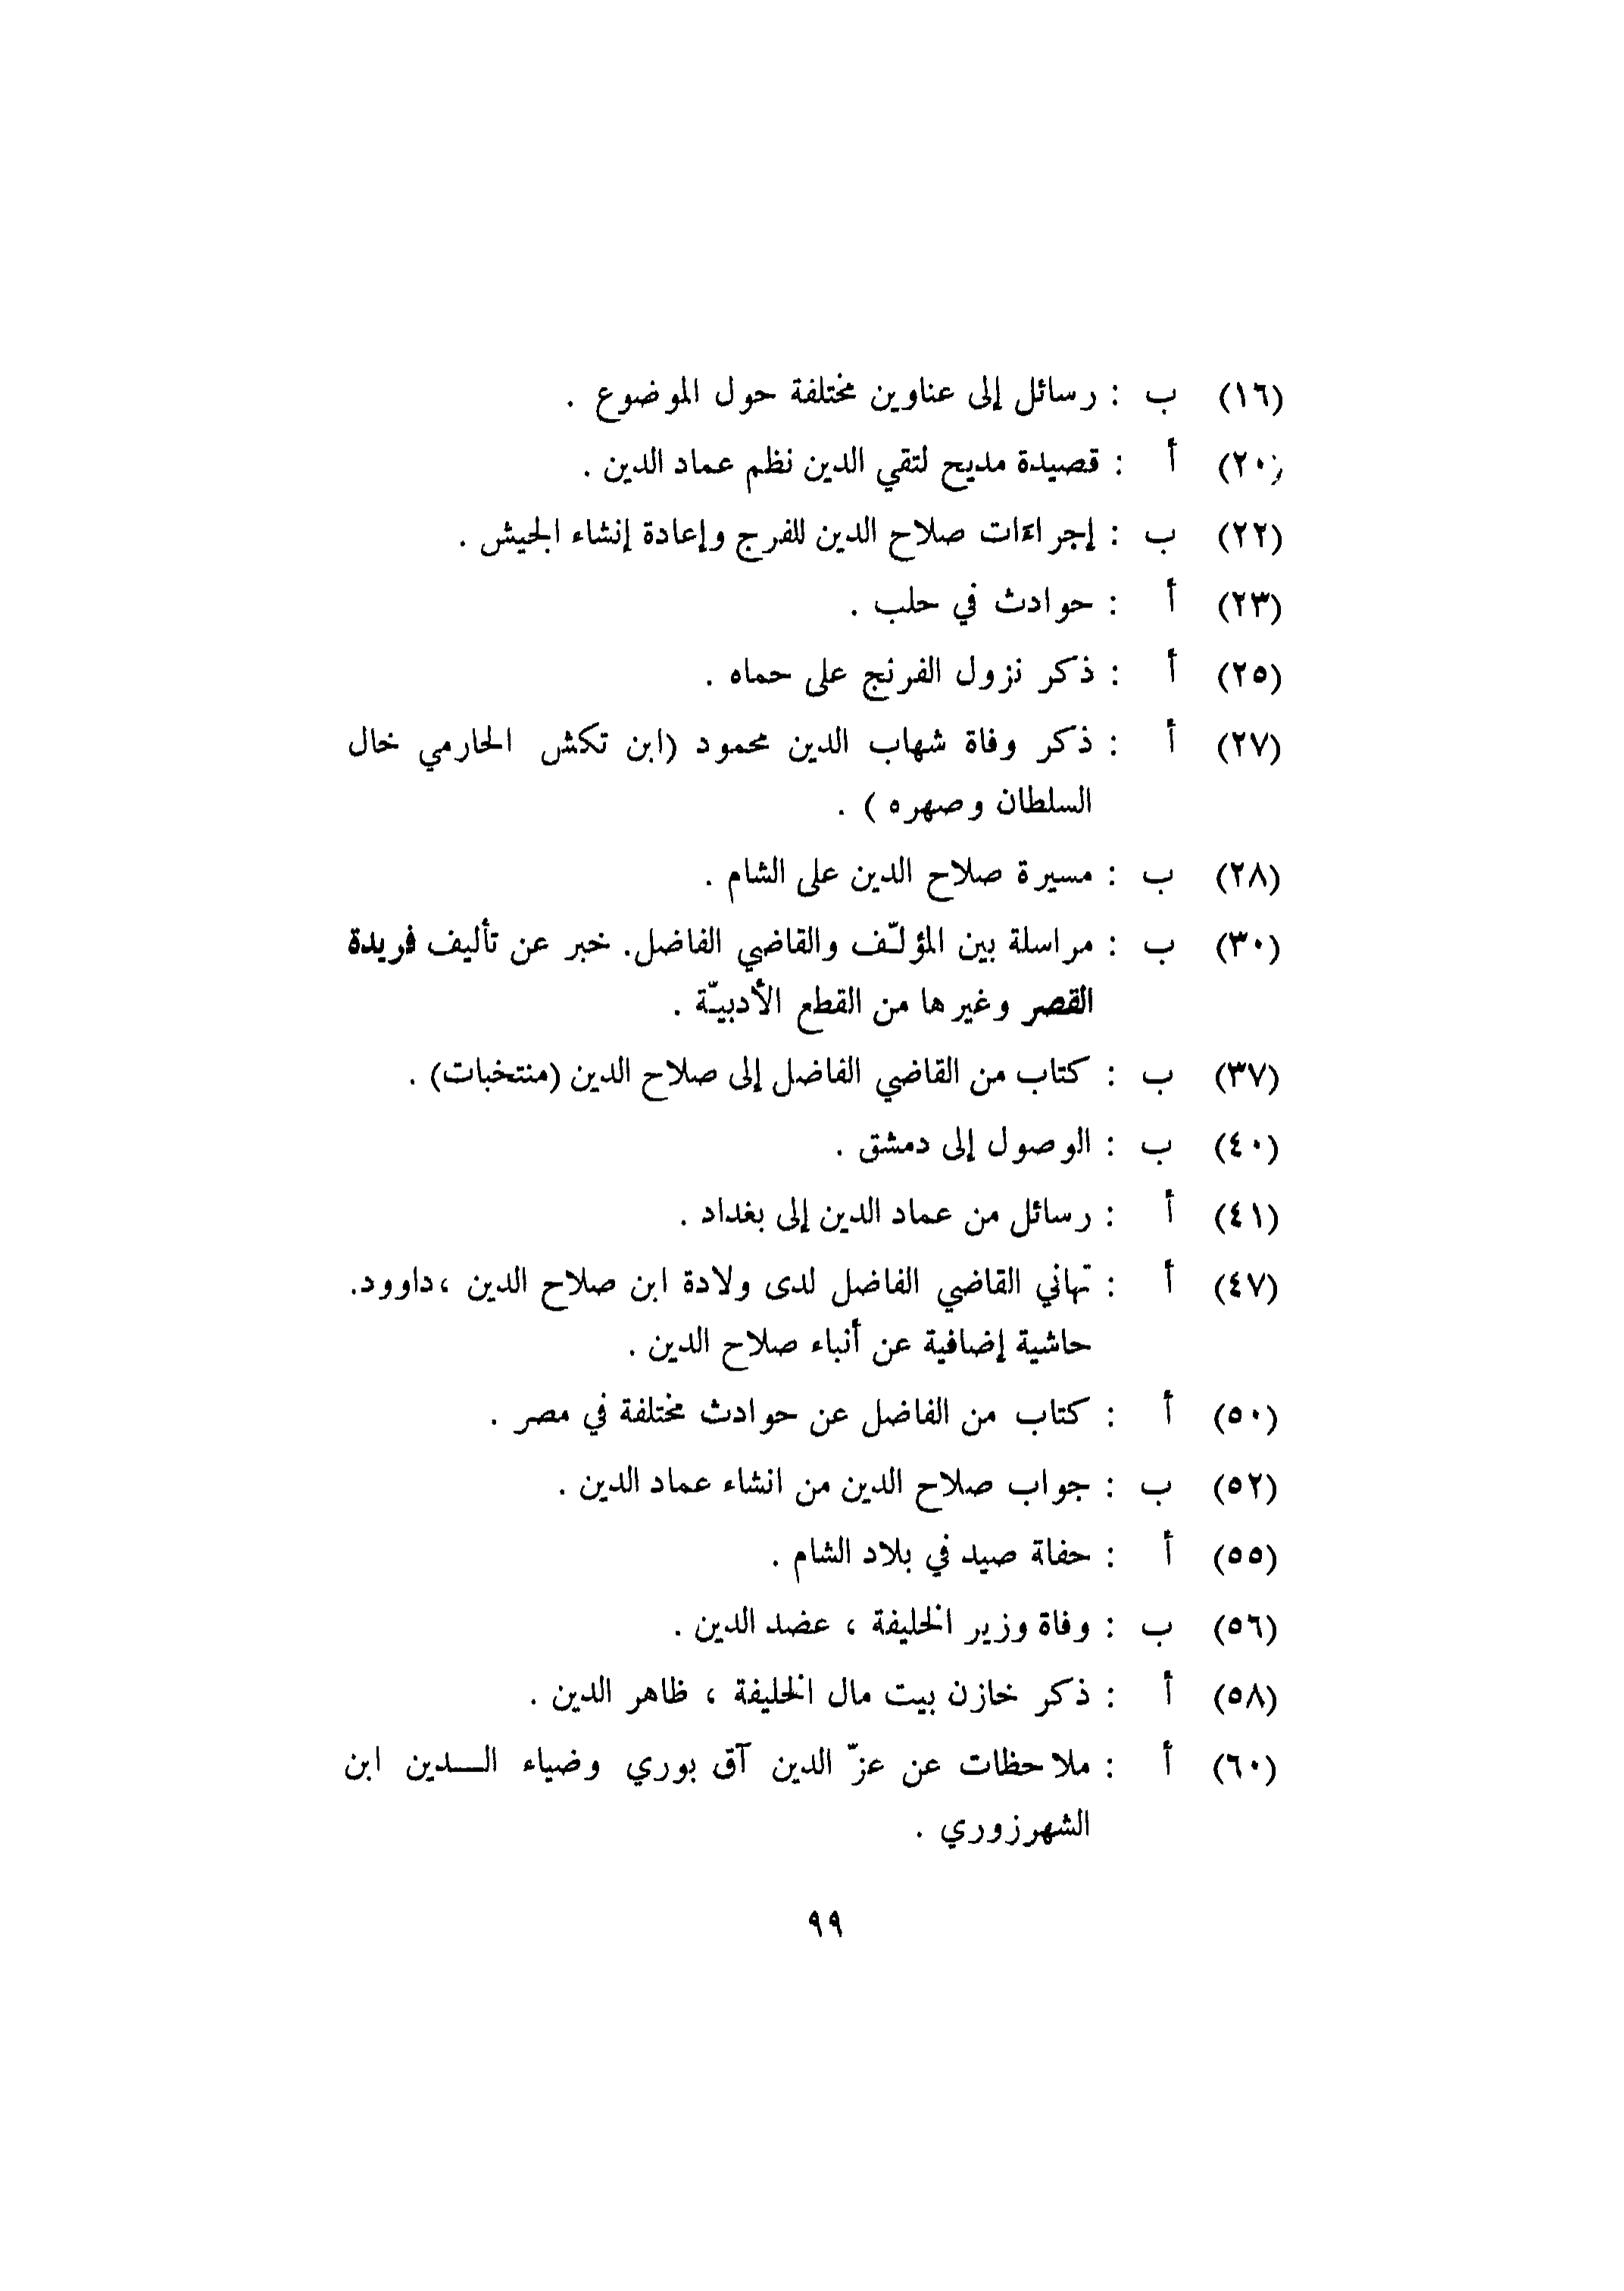 (١٦) ب : رسائل إلى عناوين مختلفة حول الموضوع .
(٢٠) أ : قصيدة مديح لتقي الدين نظم عماد الدين .
(٢٢) ب : إجراءات صلاح الدين للفرج وإعادة إنشاء الجيش .
(٢٣) أ : حوادث في حلب .
(٢٥) أ : ذكر نزول الفرنج على حماه .
(٢٧) أ : ذكر وفاة شهاب الدين محمود (ابن تكش الحارمي خال
السلطان وصهره ) .
(٢٨) ب : مسيرة صلاح الدين على الشام .
(٣٠) ب : مراسلة بين المؤلّف والقاضي الفاضل. خبر عن تأليف فريدة
القصر وغيرها من القطع الأدبيّة .
(٣٧) ب : كتاب من القاضي الفاضل إلى صلاح الدين (منتخبات) .
(٤٠) ب : الوصول إلى دمشق .
(٤١) أ : رسائل من عماد الدين إلى بغداد .
(٤٧) أ : تهاني القاضي الفاضل لدى ولادة ابن صلاح الدين ،داوود.
حاشية إضافية عن أنباء صلاح الدين .
(٥٠) أ : كتاب من الفاضل عن حوادث مختلفة في مصر .
(٥٢) ب : جواب صلاح الدين من انشاء عماد الدين .
(٥٥) أ : حفاة صيد في بلاد الشام .
(٥٦) ب : وفاة وزير الخليفة ، عضد الدين .
(٥٨) أ : ذكر خازن بيت مال الخليفة ، ظاهر الدين .
(٦٠) أ : ملاحظات عن عزّ الدين آق بوري وضياء الــدين ابن
الشهرزوري .
٩٩